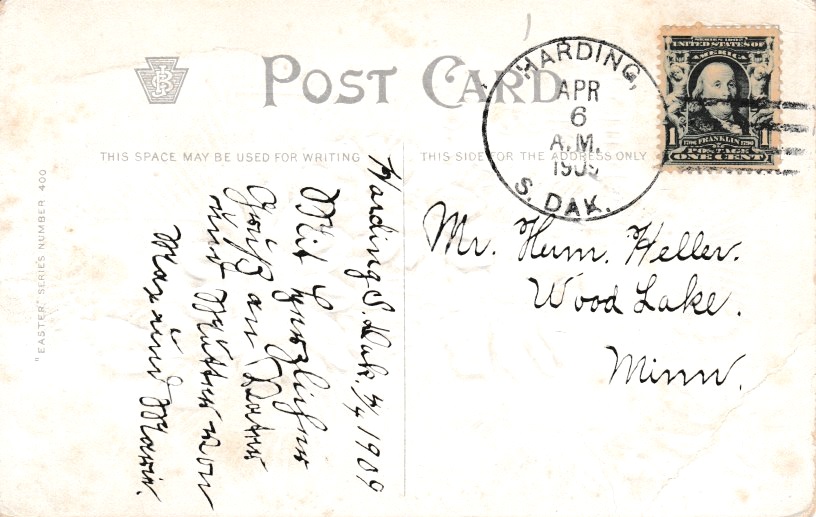 POST CARD
THIS SPACE MAY BE USED FOR WRITING
THIS SIDE FOR THE ADDRESS ONLY
"EASTER" SERIES NUMBER 400
HARDING,
APR
6
A.M.
1909
S. DAK.
SERIES 1902
UNITED STATES OF
AMERICA
1 FRANKLIN 1
POSTAGE
ONE CENT
Harding S. Dak. 5/4 1909
Mit herzlichen
Gruß an Vater
und Mutter von
Max und Marie.
Mr. Herm. Heller.
Wood Lake.
Minn.